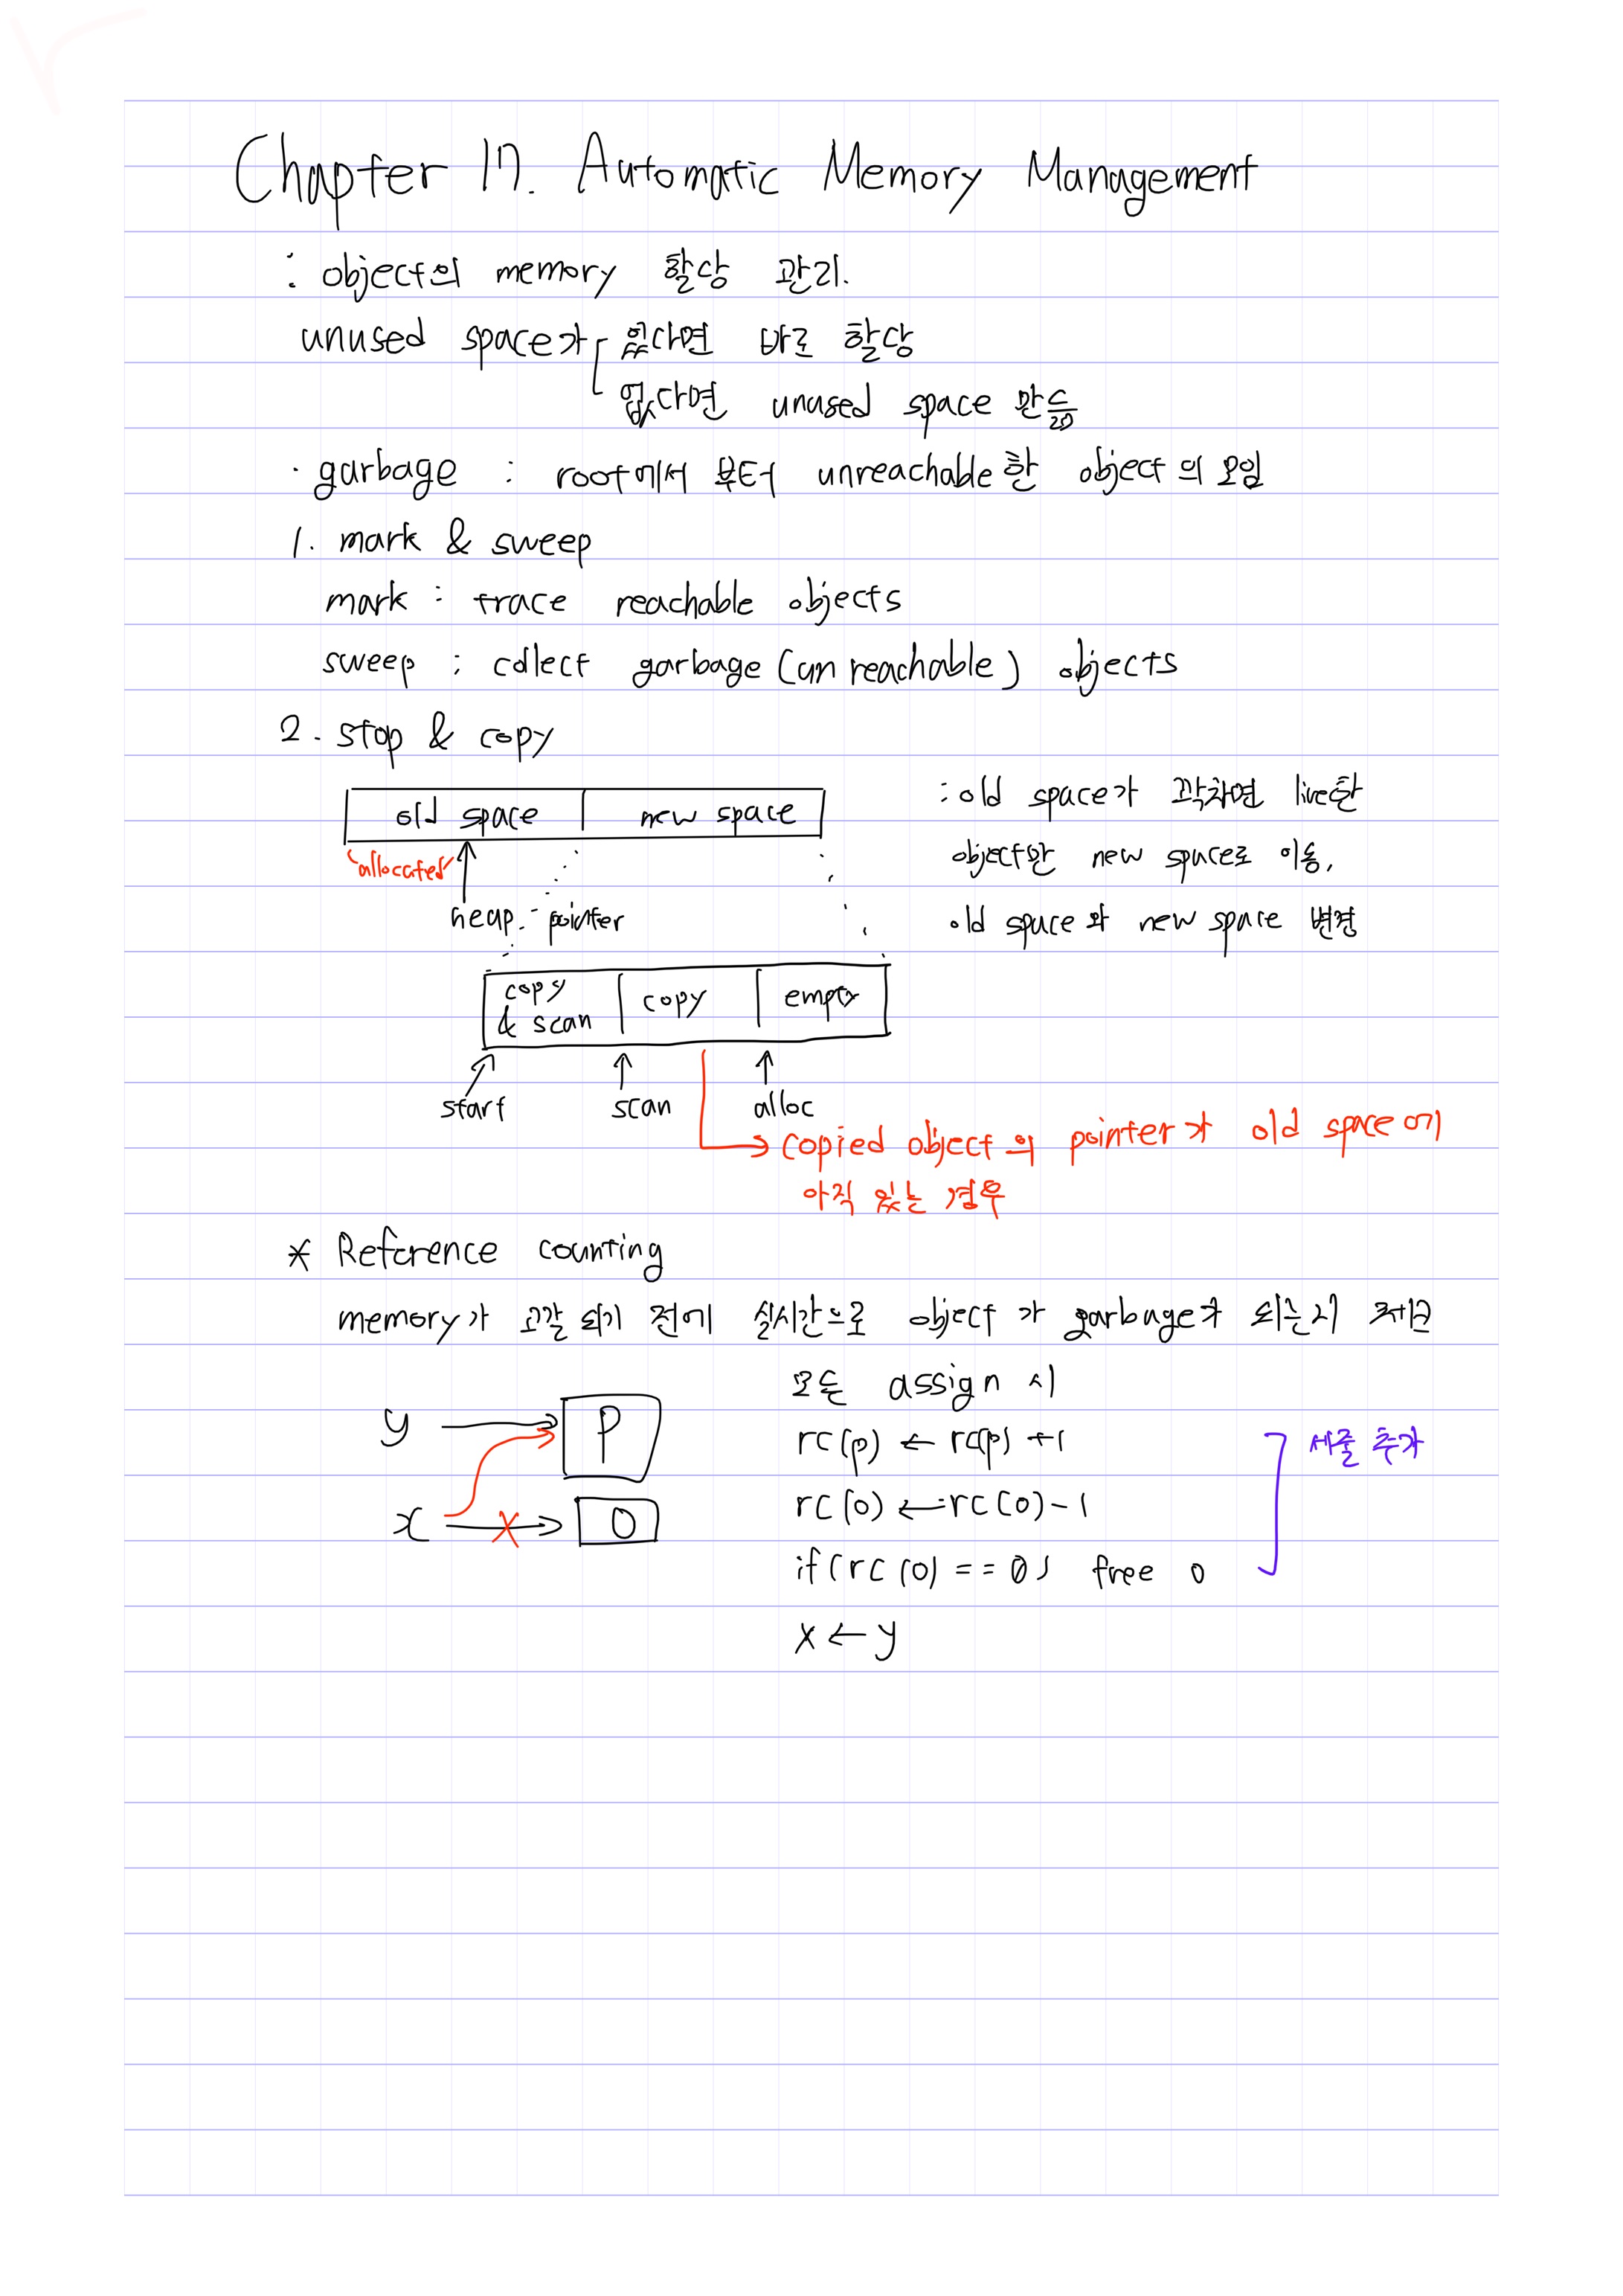 Chapter 17. Automatic Memory Management
: object의 memory 할당 관리.
unused space가 있다면 바로 할당
없다면 unused space 만듦
· garbage : root에서 부터 unreachable한 object의 모임
1. mark & sweep
mark : trace reachable objects
sweep : collect garbage (unreachable) objects
2. stop & copy
old space new space
allocated
heap pointer
: old space가 꽉차면 live한
object만 new space로 이동,
old space와 new space 변경
copy & scan copy empty
start scan alloc
copied object의 pointer가 old space에
아직 있는 경우
* Reference counting
memory가 고갈 되기 전에 실시간으로 object가 garbage가 되는지 체크
모든 assign 시
y P
rc(p) ← rc(p) +1
세줄 추가
x X O
rc(o) ← rc(o) - 1
if (rc(o) == 0) free o
x ← y